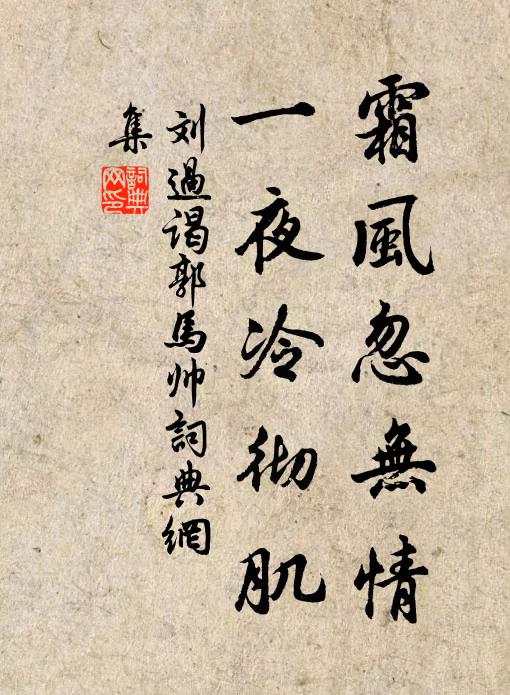 霜風忽無情
一夜冷彻肌
刘過谒郭馬帅詞典網
集
詞典
网印